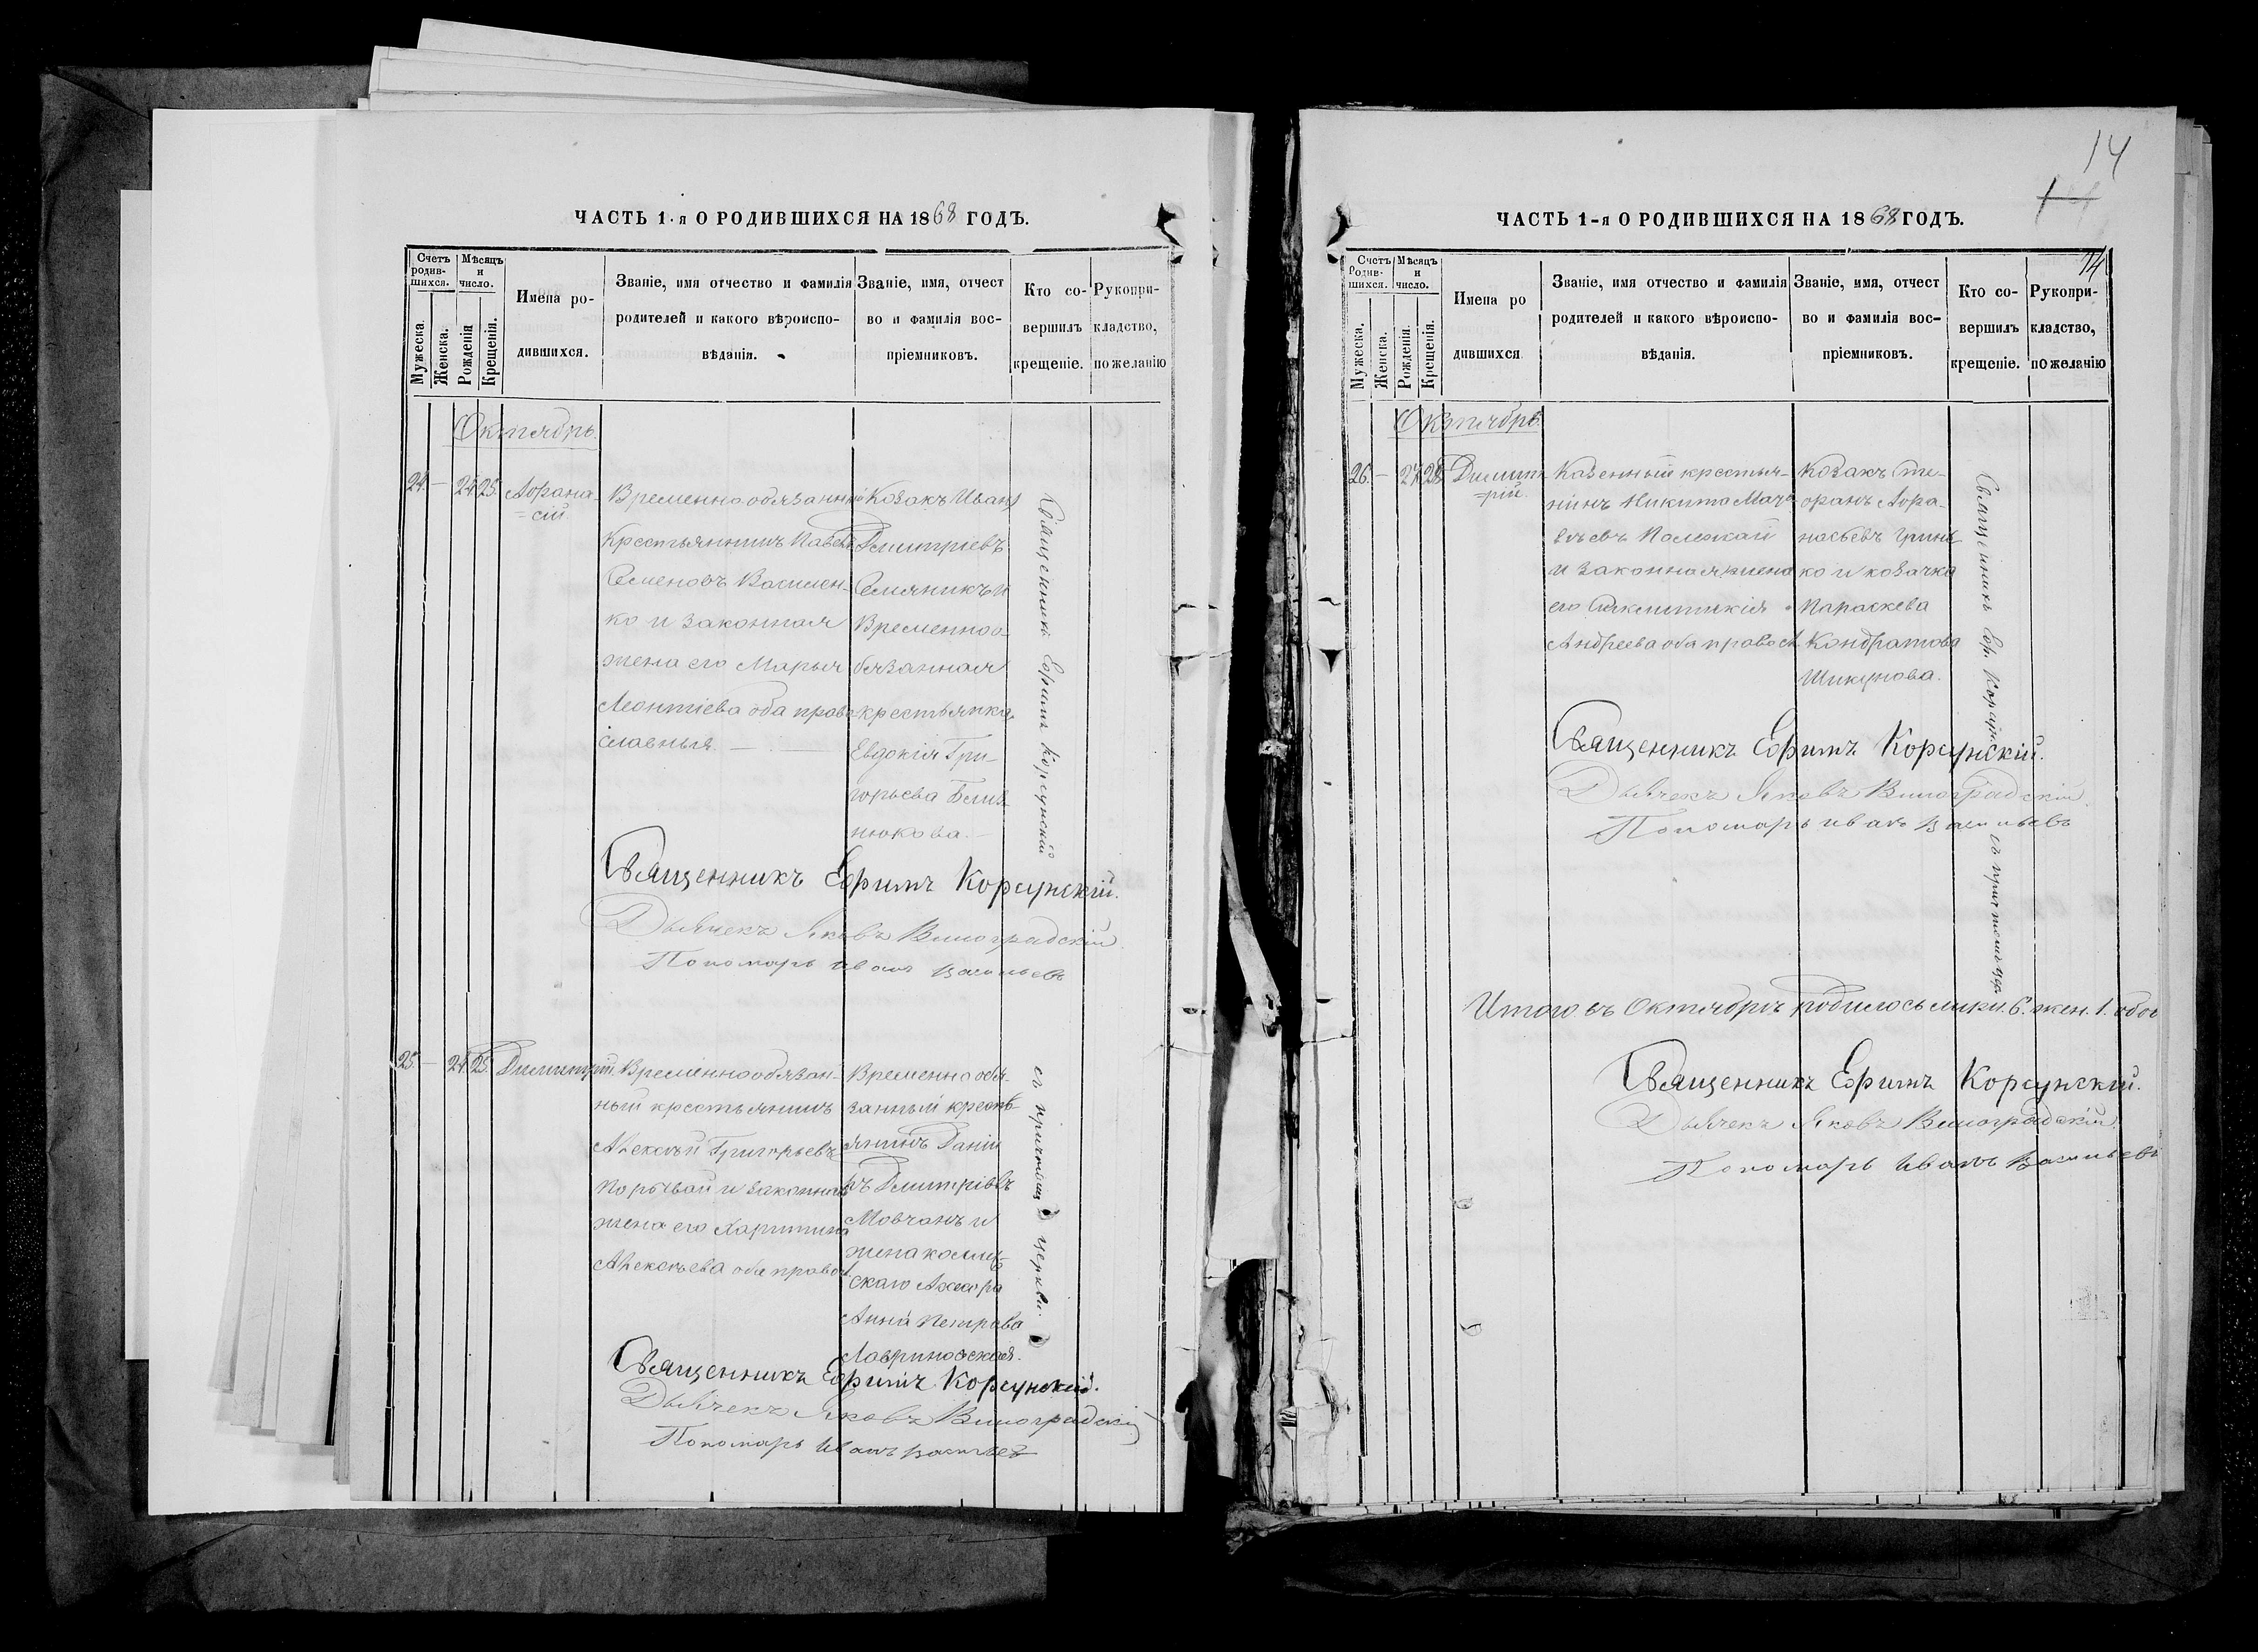 ЧАСТЬ 1-я О РОДИВШИХСЯ НА 1868 ГОДЪ.
Счетъ родив- шихся.
Мужеска.
Женска.
Мѣсяцъ и число.
Рожденія
Крещенія.
Имена ро-
дившихся.
Званіе, имя отчество и фамилія
родителей и какого вѣроиспо-
вѣданія.
Званіе, имя, отчест
во и фамилія вос-
пріемниковъ.
Кто со-
вершилъ
крещеніе.
Рукопри-
кладство,
по желанію
Октябрь
24. — 24. 25.
Афана-
=сій
Временнообязанный
Крестьянинъ Павелъ
Семеновъ Василен-
ко и законная
жена его Марья
Леонтіева оба право
славныя. —
Козакъ Иванъ
Дмитріевъ
Семяникъ и
Временноо-
бязанная
крестьянка
Евдокія Гри-
горьева Близ-
нюкова. —
Священникъ Ефимъ Корсунскій
Священникъ Ефимъ Корсунскій.
Дьячекъ Яковъ Виноградскій.
Пономарь Иванъ Васильевъ
25. — 24. 25.
Димитрій.
Временнообязан-
ный крестьянинъ
Алексѣй Григорьевъ
и законная
жена его Харитина
Алексѣева оба правос.
Временнообя-
занный кресть-
янинъ Даніи
лъ Дмитріевъ
Мовчанъ и
жена
скаго
Анна Петрова
Лавриновская.
съ причтомъ церкви.
Священникъ Ефимъ Корсунскій.
Дьячекъ Яковъ Виноградскій
Пономарь Иванъ Васильевъ
14
14
ЧАСТЬ 1-я О РОДИВШИХСЯ НА 1868 ГОДЪ.
Счетъ Родив- шихся.
Мужеска.
Женска.
Мѣсяцъ и число.
Рожденія.
Крещенія.
Имена ро
дившихся
Званіе, имя отчество и фамилія
родителей и какого вѣроиспо-
вѣданія.
Званіе, имя, отчест
во и фамилія вос-
пріемниковъ.
Кто со-
вершилъ
крещеніе.
Рукопри-
кладство,
по желанію
Октябрь
26. — 27. 28.
Димит
=рій.
Казенный крестья-
нинъ Никита Мат-
вѣевъ
и законная жена
его
Андреева оба правосл.
Козакъ
Афа-
насьевъ Гринь
ко и козачка
Параскева
Кондратова
Шикунова.
Священникъ Еф. Корсун.
съ причтомъ цер.
Священникъ Ефимъ Корсунскій.
Дьячекъ Яковъ Виноградскій.
Пономарь Иванъ Васильевъ
Итого въ Октябрѣ родилось муж. 6. жен. 1. обое
Священникъ Ефимъ Корсунскій.
Дьячекъ Яковъ Виноградскій.
Пономарь Иванъ Васильевъ